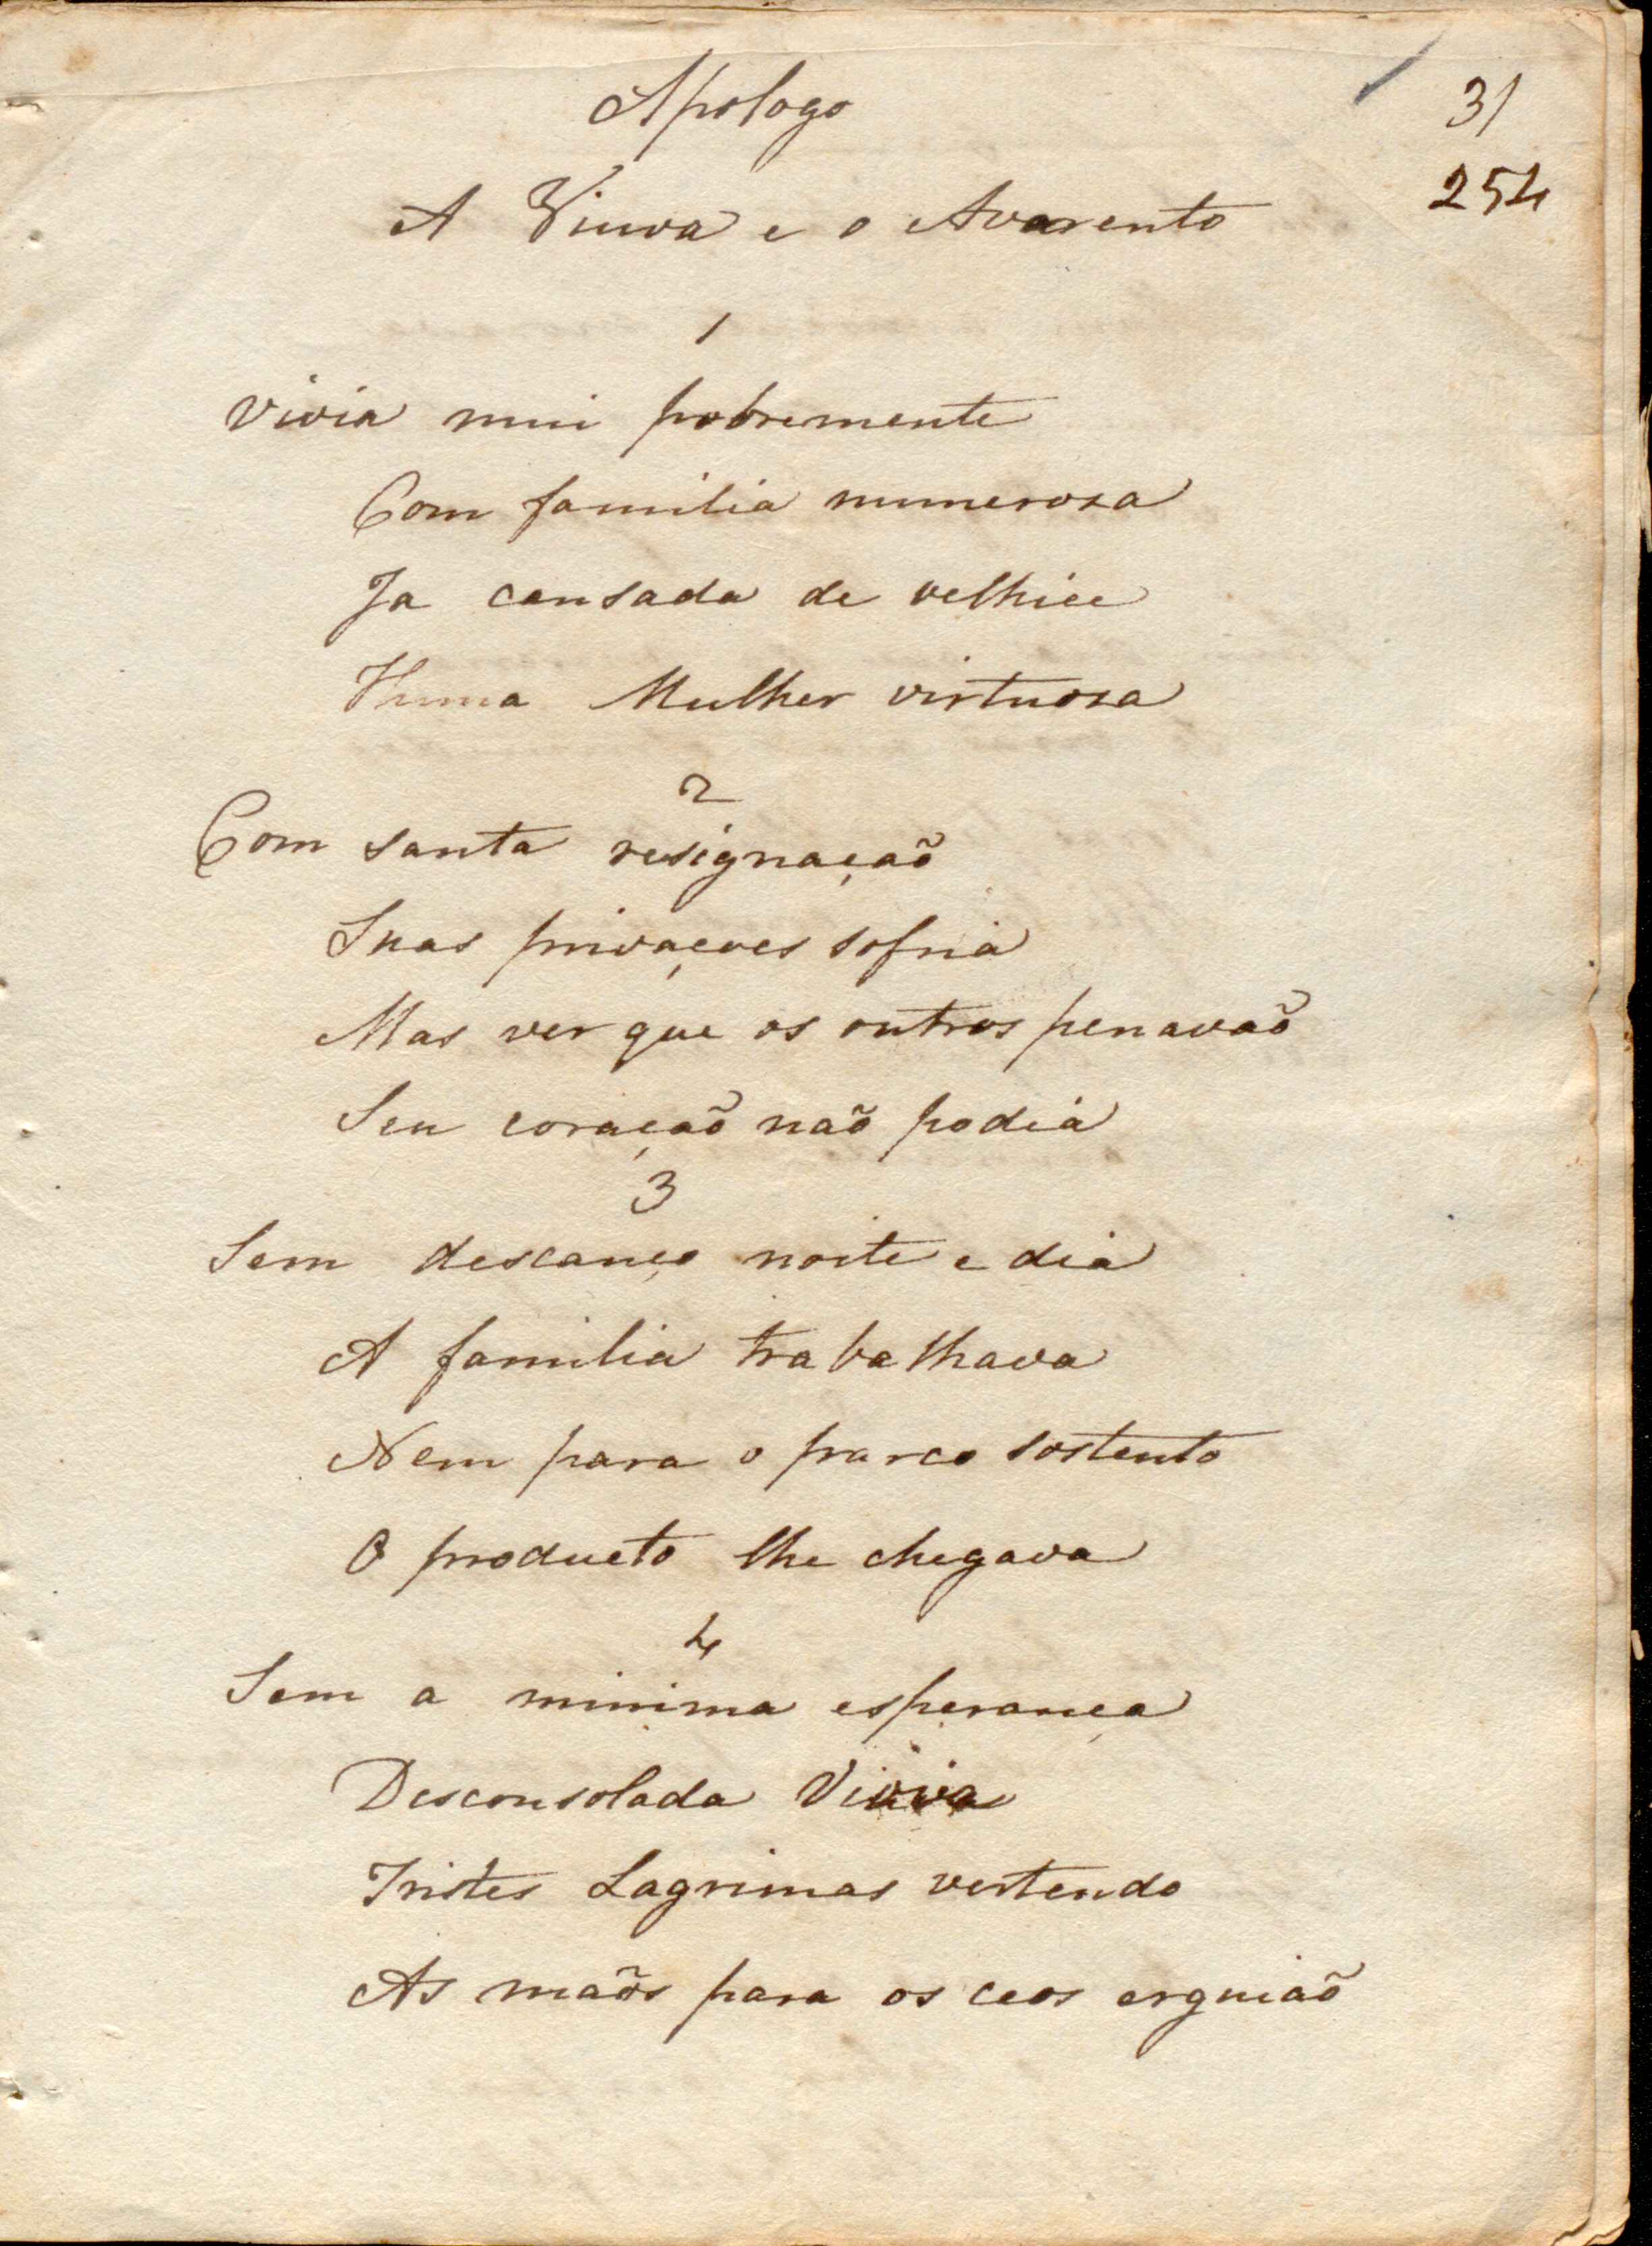 Apologo
31
254
A Viuva e o Avarento
1
Vivia mui pobremente
Com familia numeroza
Ja cansada de velhice
Huma Mulher virtuoza
2
Com santa resignaçaõ
Suas privaçoes sofria
Mas ver que os outros penavaõ
Seu coraçaõ naõ podia
3
Sem descanço noite e dia
A familia trabalhava
Nem para o parco sostento
O producto lhe chegava
4
Sem a minima esperança
Desconsolada Viuva
Tristes Lagrimas vertendo
As maõs para os ceos erguiaõ